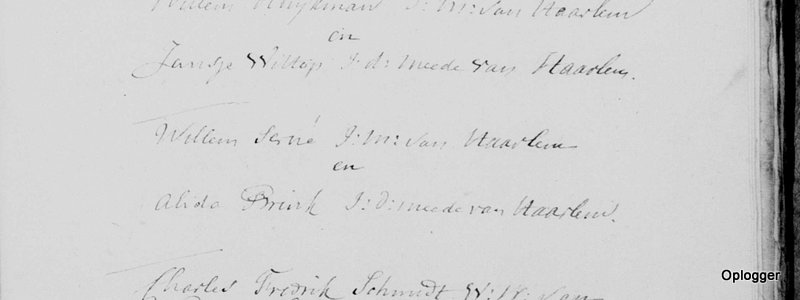 Willem Huijkman J: M: van Haarlem
en
Jansje Willop J: d: meede van Haarlem.
Willem Servé J: M: van Haarlem
en
Alida Brink J: D: meede van Haarlem.
Charles Fredrik Schmidt W: N: van
Oplogger